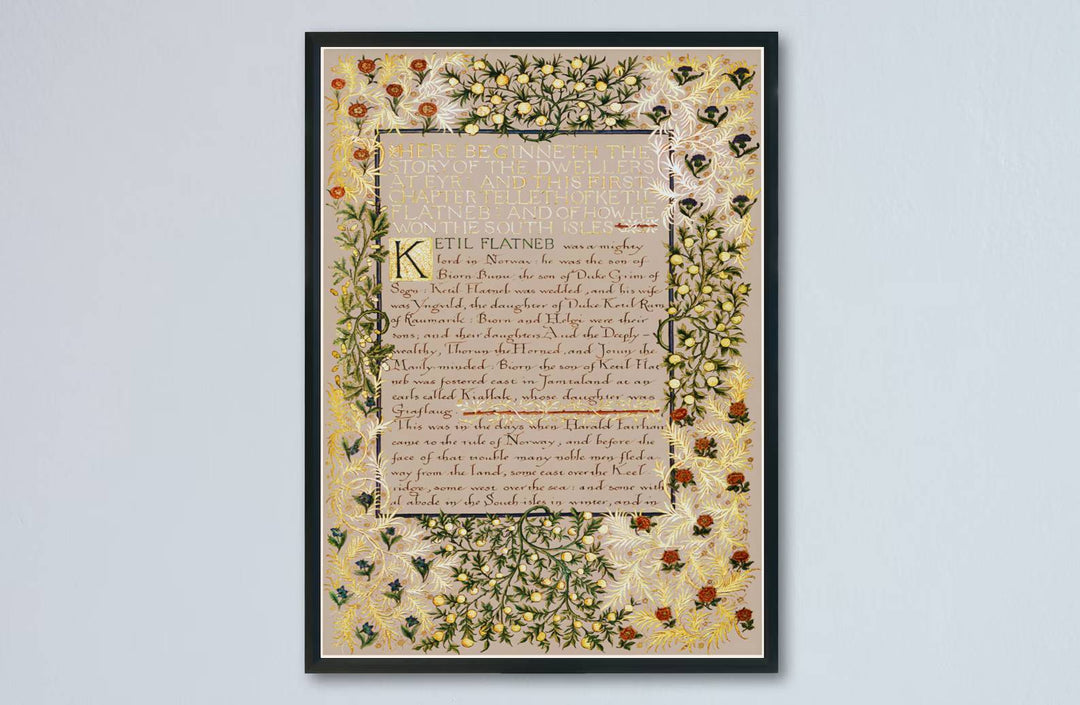 HERE BEGINNETH THE
STORY OF THE DWELLERS
AT EYR AND THIS FIRST
CHAPTER TELLETH OF KETIL
FLATNEB AND OF HOW HE
WON THE SOUTH ISLES
KETIL FLATNEB was a mighty
lord in Norway: he was the son of
Biorn Bunu the son of Duke Grim of
Sogn: Ketil Flatneb was wedded, and his wife
was Yngvild, the daughter of Duke Ketil Ram
of Raumarik: Biorn and Helgi were their
sons; and their daughters Aud the Deeply
wealthy, Thorun the Horned, and Jorun the
Manly-minded: Biorn the son of Ketil Flat
neb was fostered east in Jamtaland at an
earls called Kiallak, whose daughter was
Giaflaug
This was in the days when Harald Fairhair
came to the rule of Norway, and before the
face of that trouble many noble men fled a-
way from the land, some east over the Keel-
ridge, some west over the sea: and some with
al abode in the South-isles in winter, and in